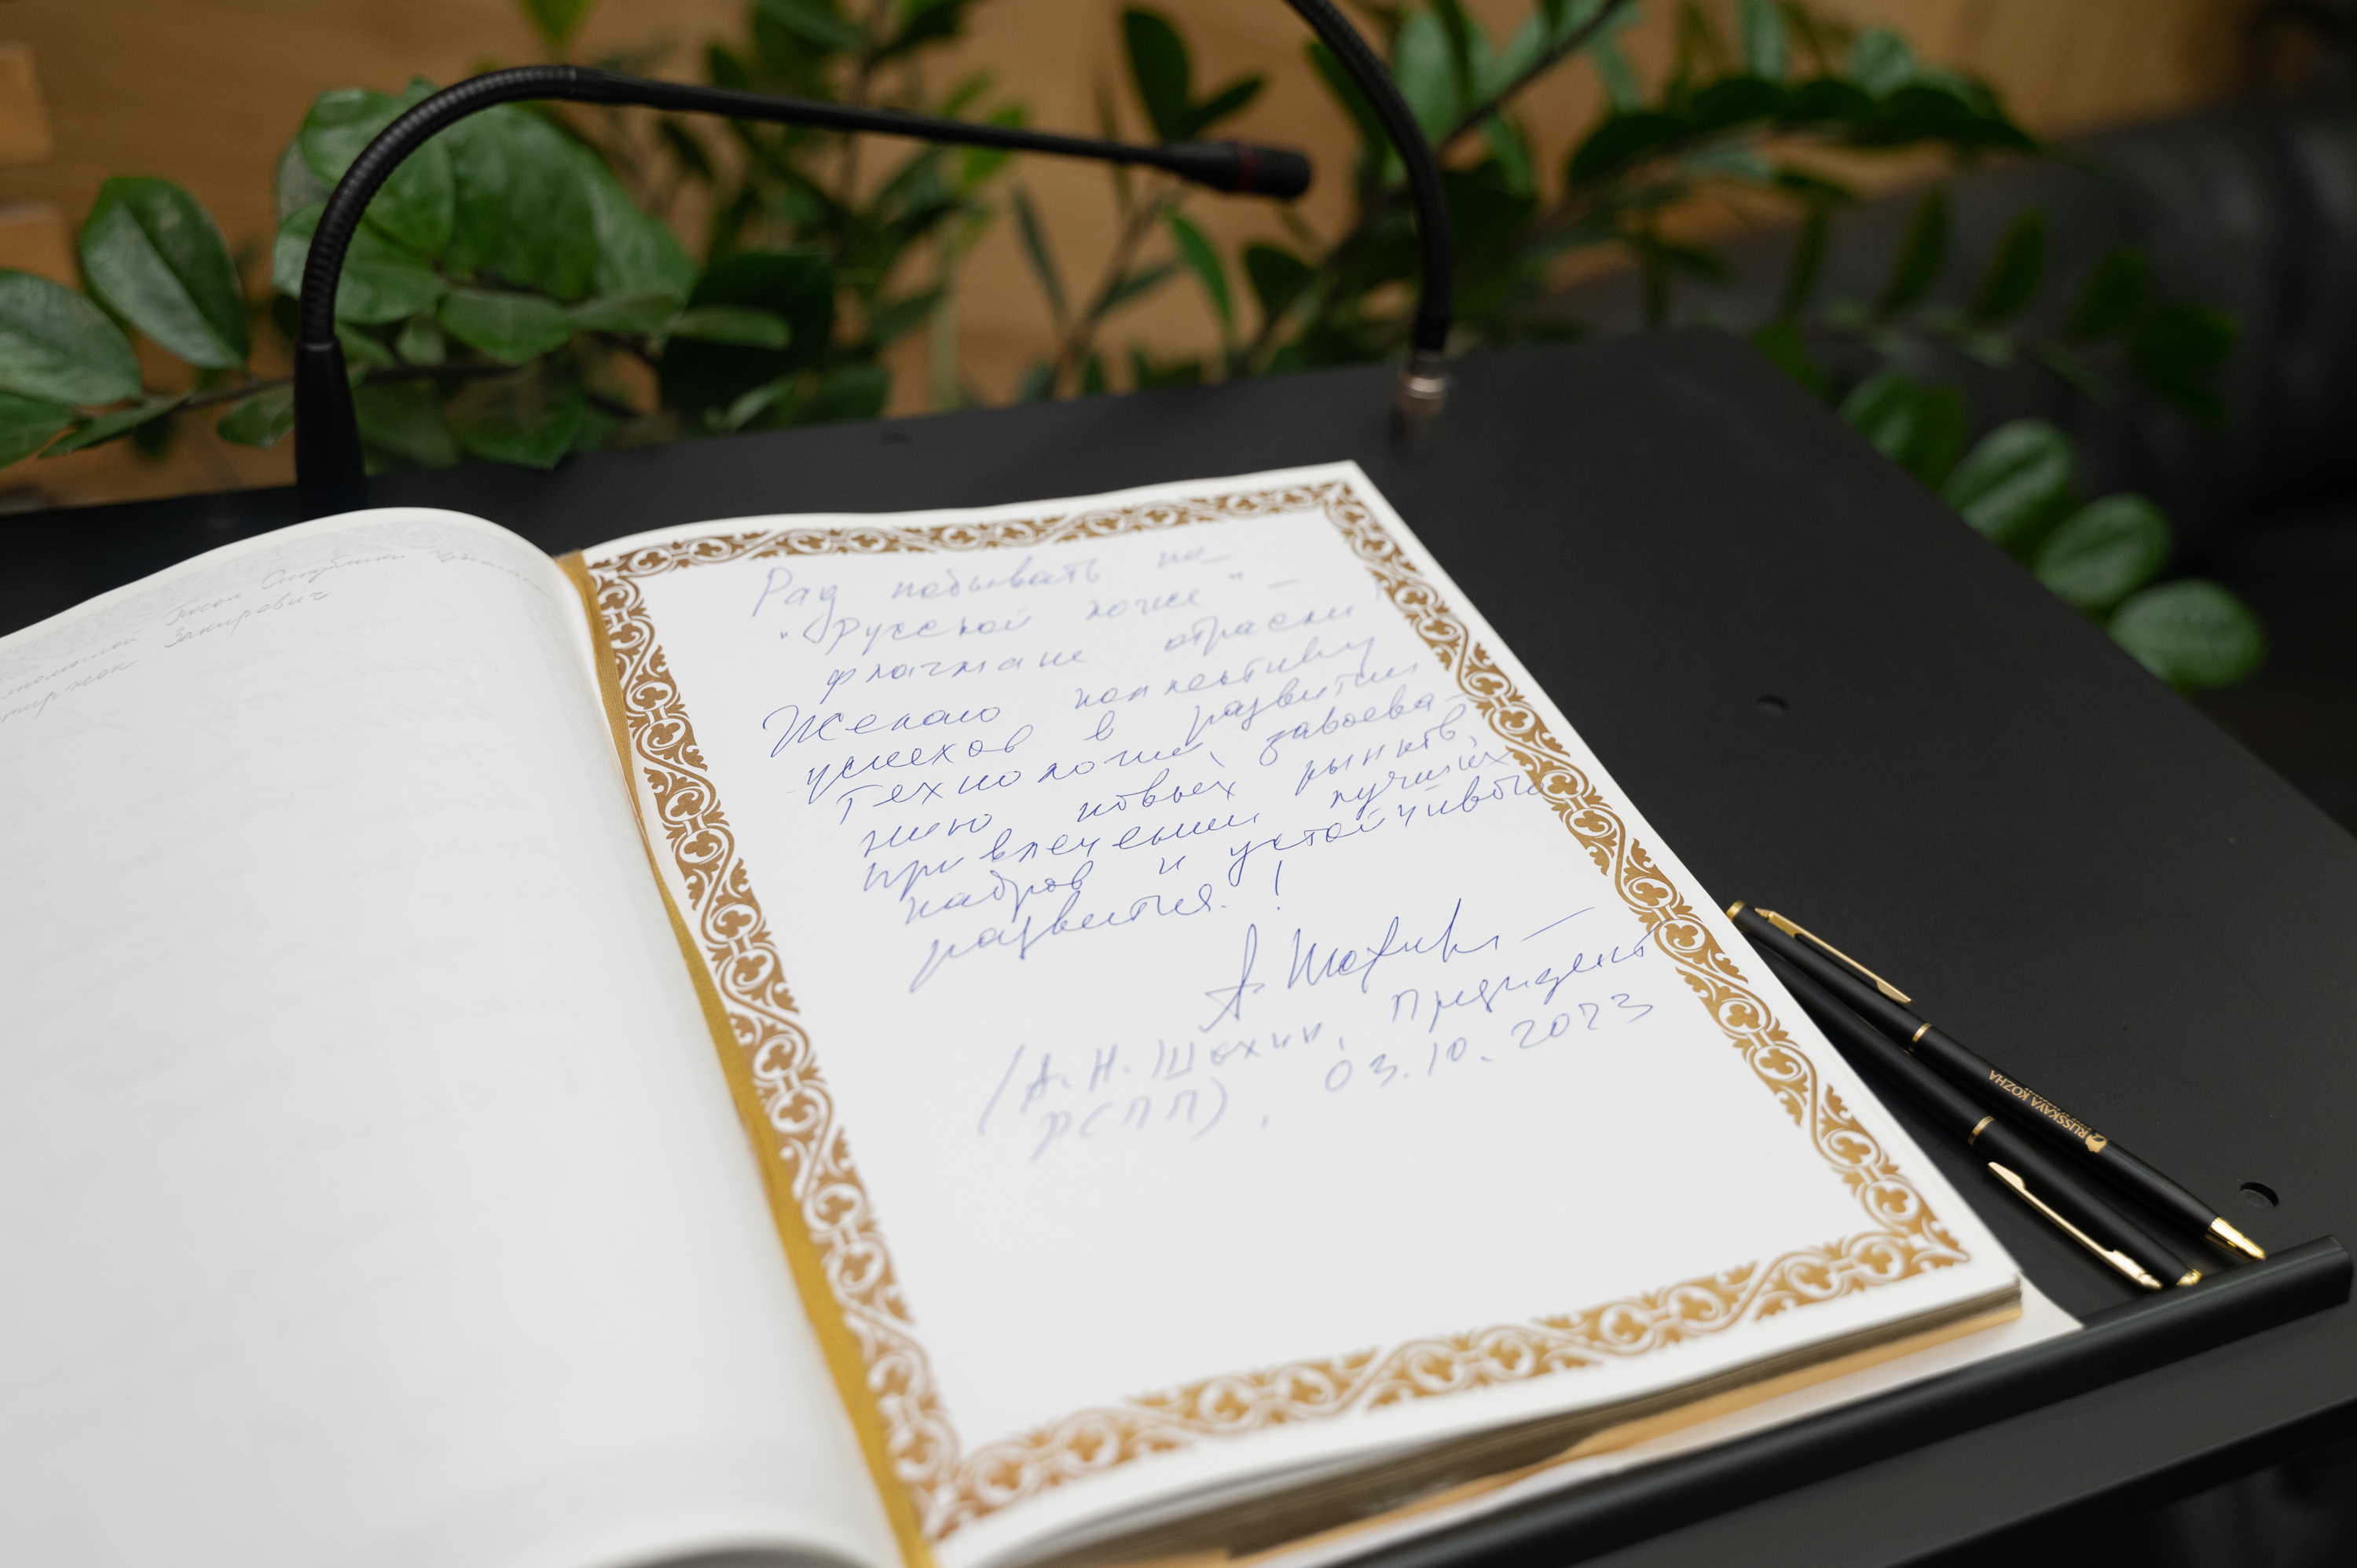 Закирович
Рад побывать на
"Русской коже" –
флагмане отрасли!
Желаю коллективу
успехов в развитии
технологий, завоева-
нию новых рынков,
привлечении лучших
кадров и устойчивого
развития!
А. Шохин –
(А. Н. Шохин, Президент
РСПП), 03.10.2023
RUSSKAYA KOZHA